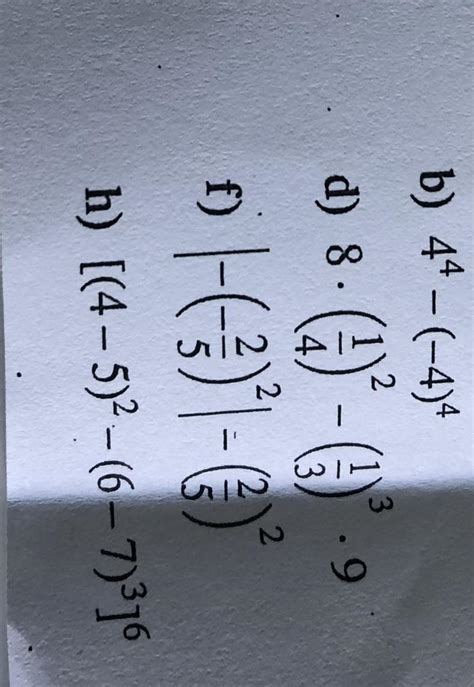 b) 4⁴ − (−4)⁴
d) 8 · (1/4)² − (1/3)³ · 9
f) |−(−2/5)²| − (2/5)²
h) [(4 − 5)² − (6 − 7)³]⁶